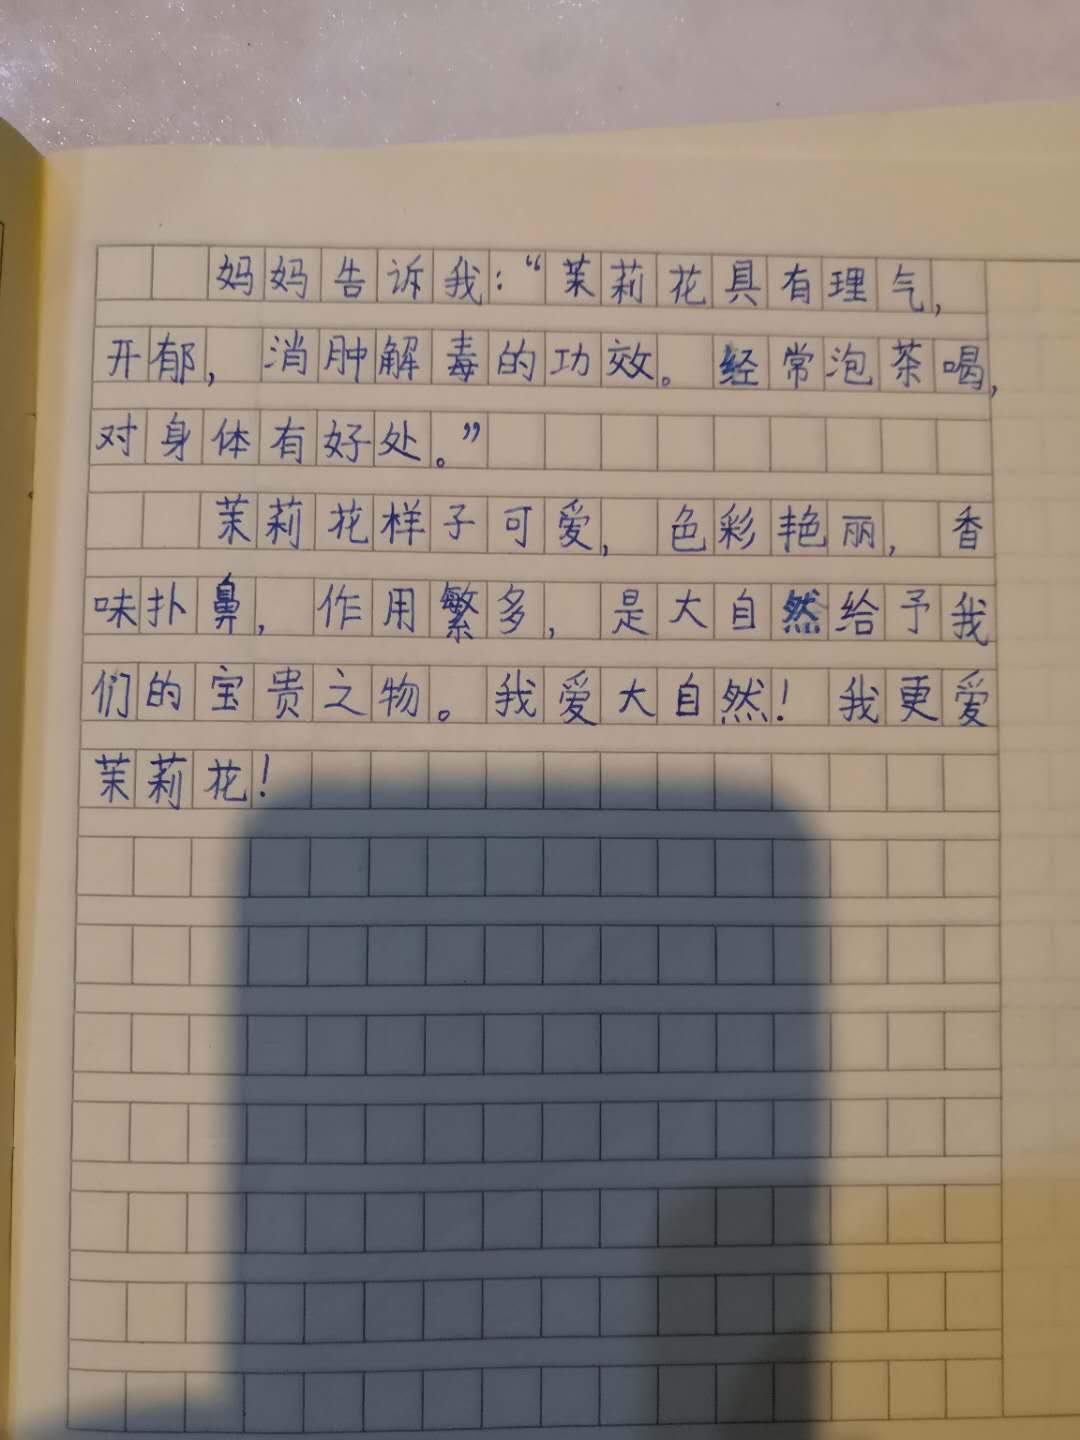 妈妈告诉我：“茉莉花具有理气，
开郁，消肿解毒的功效。经常泡茶喝，
对身体有好处。”
茉莉花样子可爱，色彩艳丽，香
味扑鼻，作用繁多，是大自然给予我
们的宝贵之物。我爱大自然！我更爱
茉莉花！